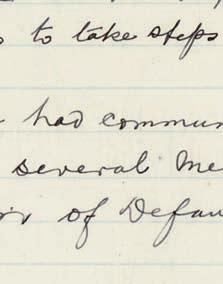 to take steps
had commun
several Me
of Defau